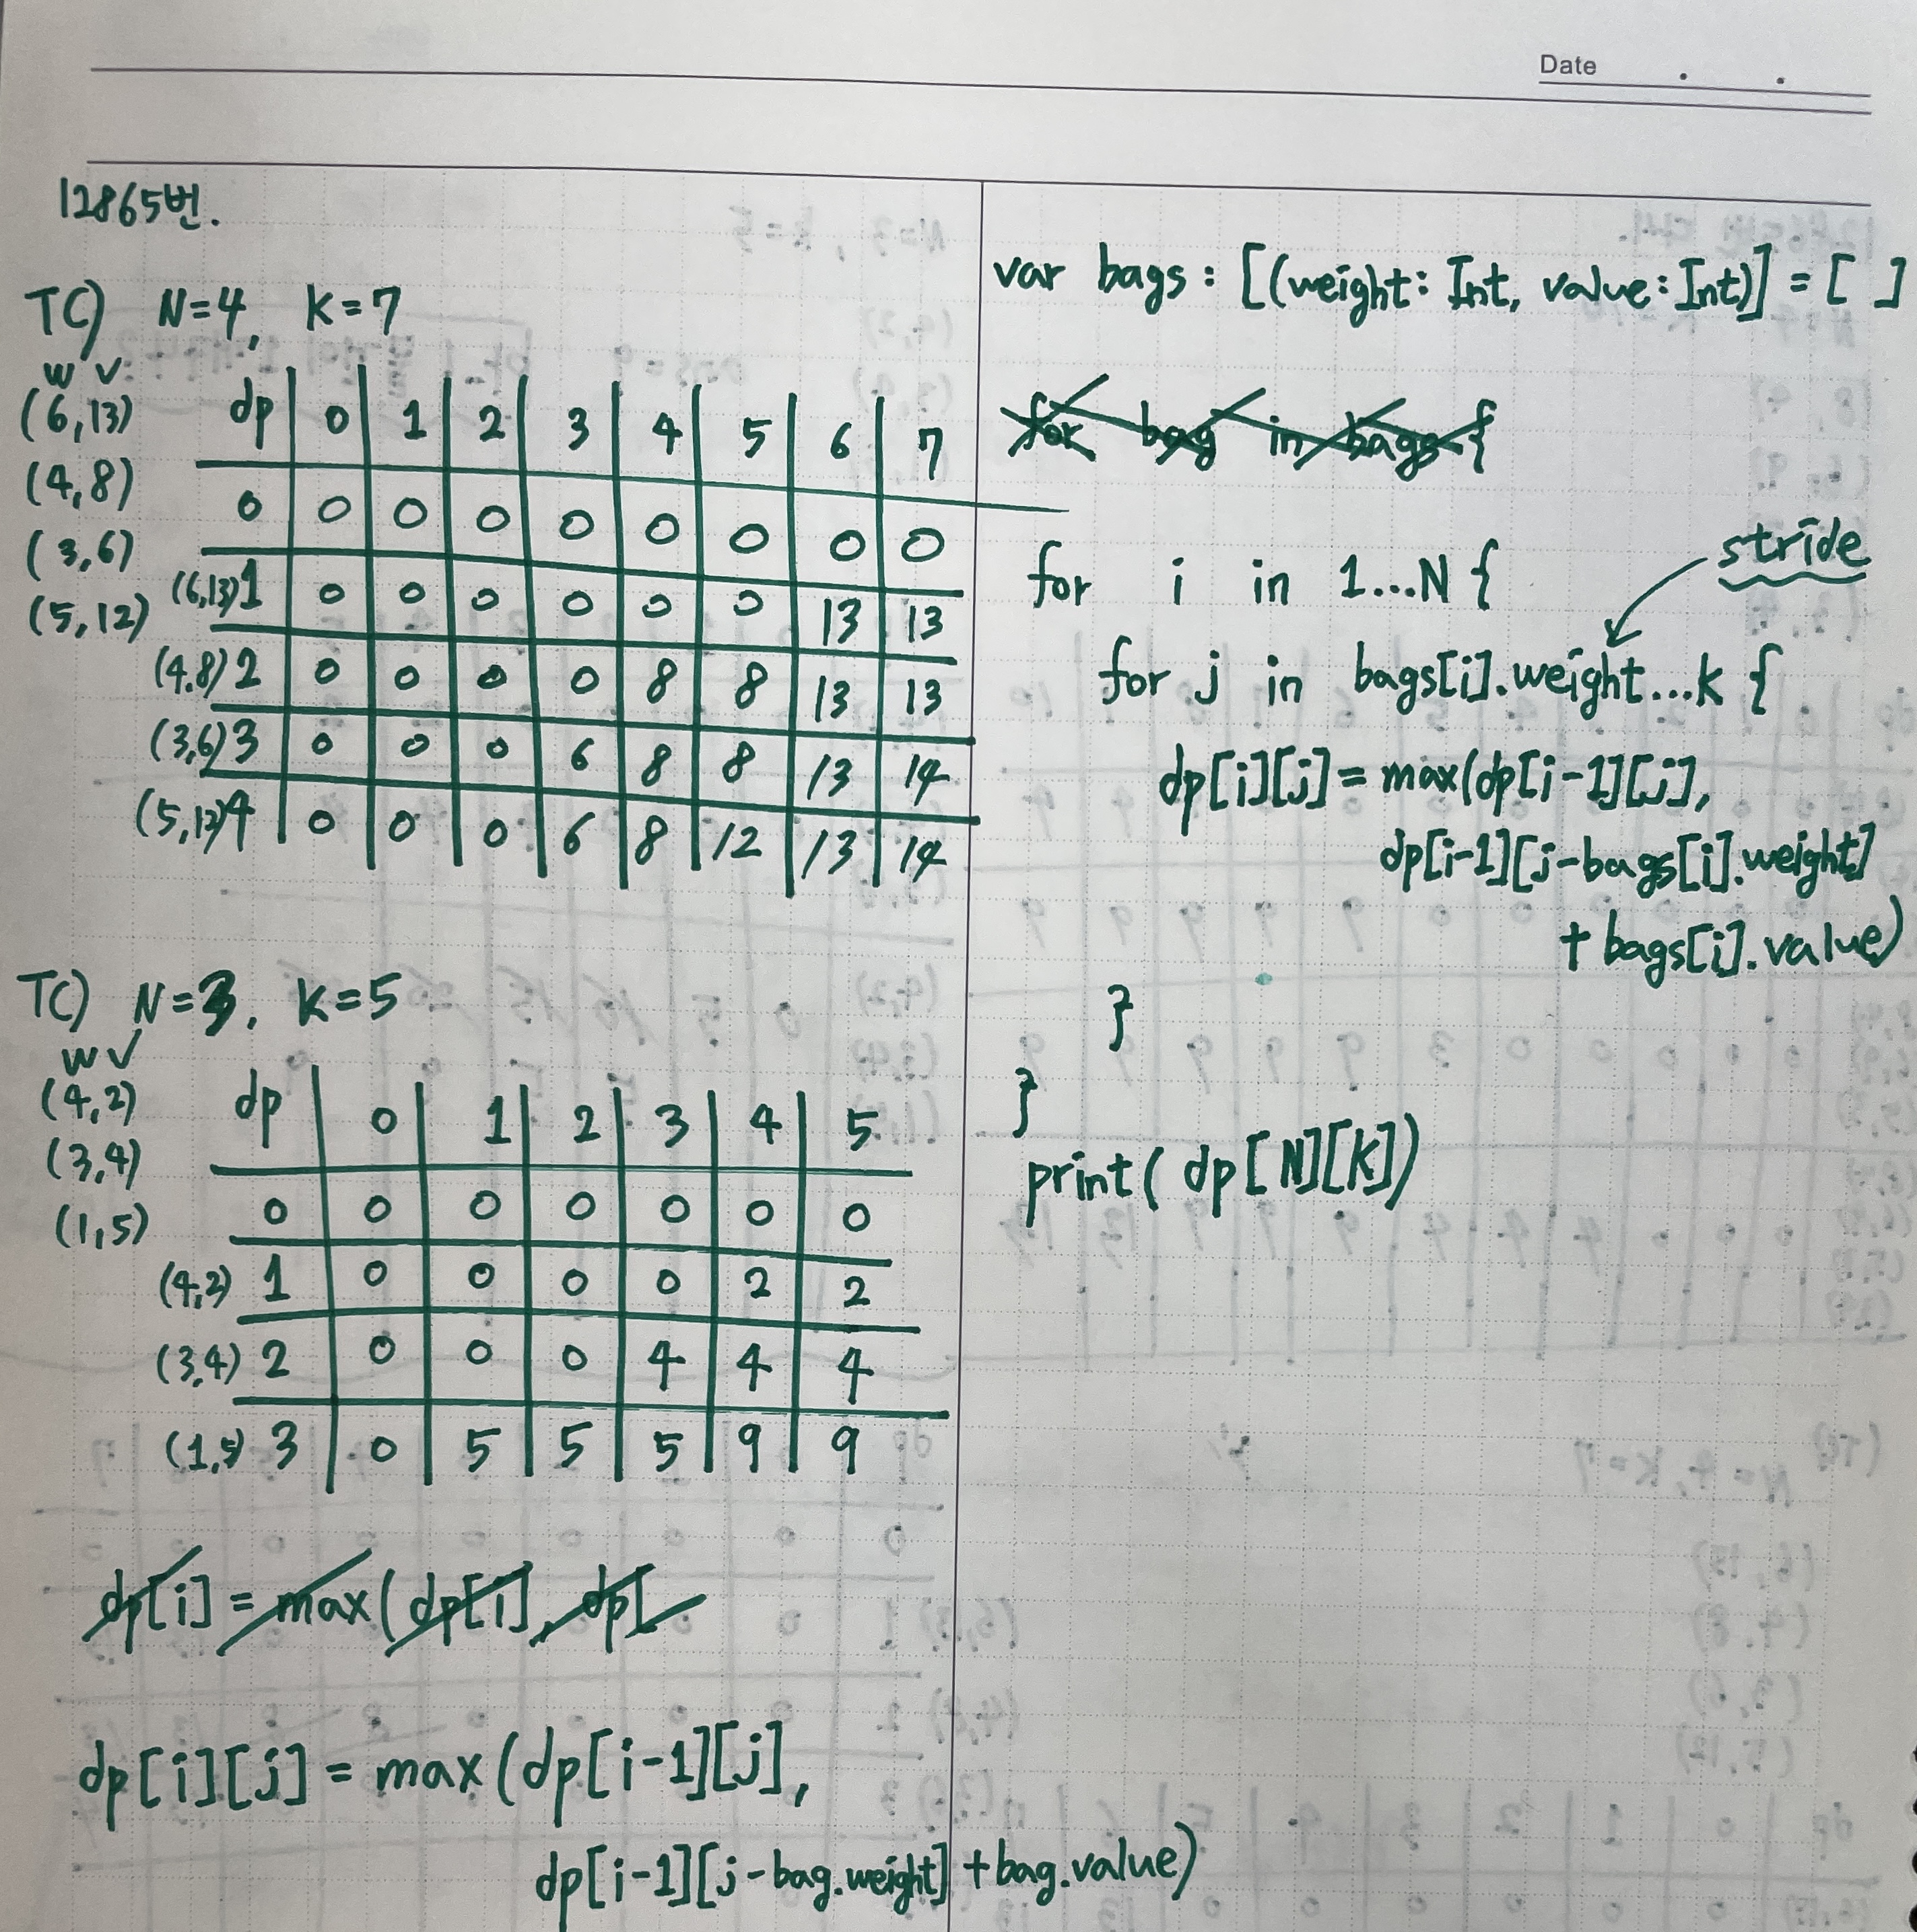 Date . .
12865번.
TC) N=4, K=7
w v
(6,13)
(4,8)
(3,6)
(5,12)
dp 0 1 2 3 4 5 6 7
0 0 0 0 0 0 0 0 0
(6,13) 1 0 0 0 0 0 0 13 13
(4,8) 2 0 0 0 0 8 8 13 13
(3,6) 3 0 0 0 6 8 8 13 14
(5,12) 4 0 0 0 6 8 12 13 14
TC) N=3, K=5
w v
(4,2)
(3,4)
(1,5)
dp 0 1 2 3 4 5
0 0 0 0 0 0 0
(4,2) 1 0 0 0 0 2 2
(3,4) 2 0 0 0 4 4 4
(1,5) 3 0 5 5 5 9 9
dp[i] = max(dp[i], dp[
dp[i][j] = max(dp[i-1][j],
dp[i-1][j-bag.weight] + bag.value)
var bags : [(weight: Int, value: Int)] = [ ]
for bag in bags {
for i in 1...N {
stride
for j in bags[i].weight...k {
dp[i][j] = max(dp[i-1][j],
dp[i-1][j-bags[i].weight]
+ bags[i].value)
}
}
print( dp[N][K])